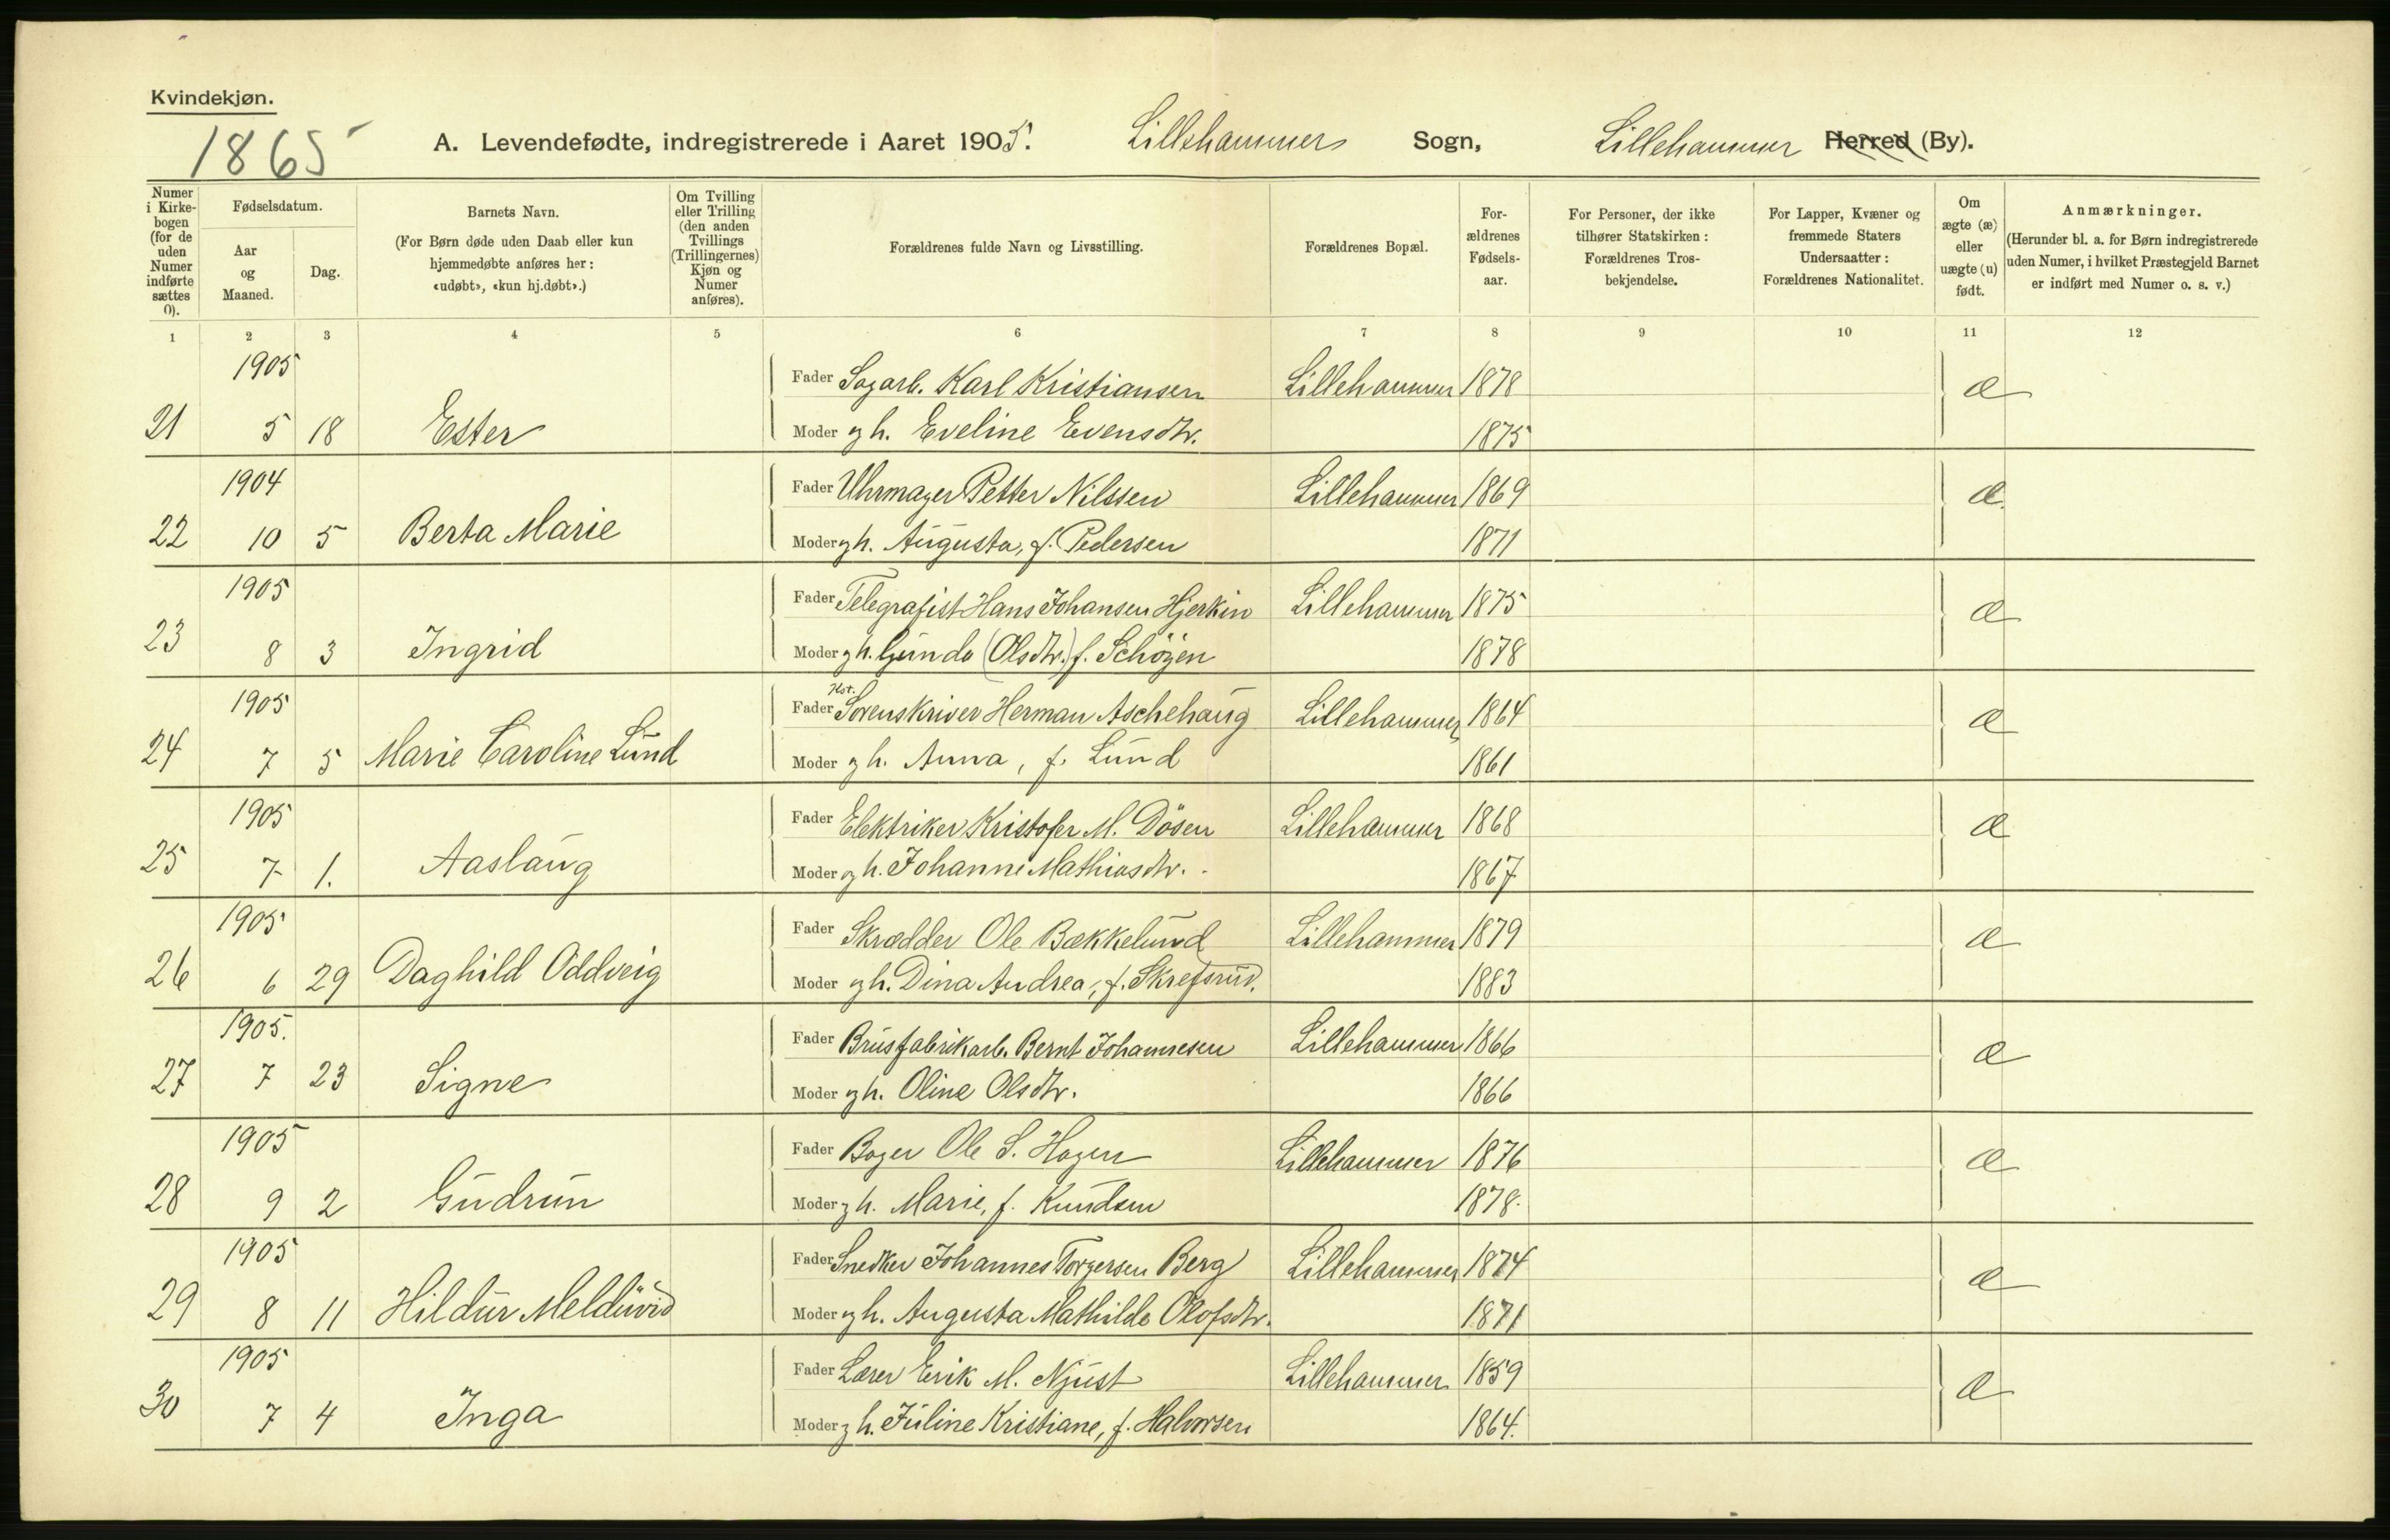 Kvindekjøn.
1865
A. Levendefødte, indregistrerede i Aaret 1905. Lillehammer Sogn, Lillehammer Herred (By).
Numer i Kirkebogen (for de uden Numer indførte sættes 0).
Fødselsdatum.
Aar og Maaned.
Dag.
Barnets Navn.
(For Børn døde uden Daab eller kun hjemmedøbte anføres her: «udøbt», «kun hj.døbt».)
Om Tvilling eller Trilling (den anden Tvillings (Trillingernes) Kjøn og Numer anføres).
Forældrenes fulde Navn og Livsstilling.
Forældrenes Bopæl.
Forældrenes Fødselsaar.
For Personer, der ikke tilhører Statskirken: Forældrenes Trosbekjendelse.
For Lapper, Kvæner og fremmede Staters Undersaatter: Forældrenes Nationalitet.
Om ægte (æ) eller uægte (u) født.
Anmærkninger.
(Herunder bl. a. for Børn indregistrerede uden Numer, i hvilket Præstegjeld Barnet er indført med Numer o. s. v.)
1 2 3 4 5 6 7 8 9 10 11 12
1905 Fader Sagarb. Karl Kristiansen Lillehammer 1878 æ
21 5 18 Ester Moder gh. Eveline Evensdtr. 1875
1904 Fader Uhrmager Petter Nilssen Lillehammer 1869 æ
22 10 5 Berta Marie Moder gh. Augusta, f. Pedersen 1871
1905 Fader Telegrafist Hans Johansen Hjerkin Lillehammer 1875 æ
23 8 3 Ingrid Moder gh. Gunda (Olsdtr.) f. Schöyen 1878
1905 Fader Kst. Sorenskriver Herman Aschehaug Lillehammer 1864 æ
24 7 5 Marie Caroline Lund Moder gh. Anna, f. Lund 1861
1905 Fader Elektriker Kristofer M. Dösen Lillehammer 1868 æ
25 7 1. Aaslaug Moder gh. Johanne Mathiasdtr. 1867
1905 Fader Skrædder Ole Bækkelund Lillehammer 1879 æ
26 6 29 Daghild Oddveig Moder gh. Dina Andrea, f. Skrefsrud. 1883
1905. Fader Brusfabrikarb. Bernt Johannesen Lillehammer 1866 æ
27 7 23 Signe Moder gh. Oline Olsdtr. 1866
1905 Fader Bager Ole S. Hagen Lillehammer 1876 æ
28 9 2 Gudrun Moder gh. Marie, f. Knudsen 1878.
1905 Fader Snedker Johannes Torgersen Berg Lillehammer 1874 æ
29 8 11 Hildur Melduvid Moder gh. Augusta Mathilde Olofsdtr. 1871
1905 Fader Lærer Erik M. Njust Lillehammer 1859 æ
30 7 4 Inga Moder gh. Juline Kristiane, f. Halvorsen 1864.